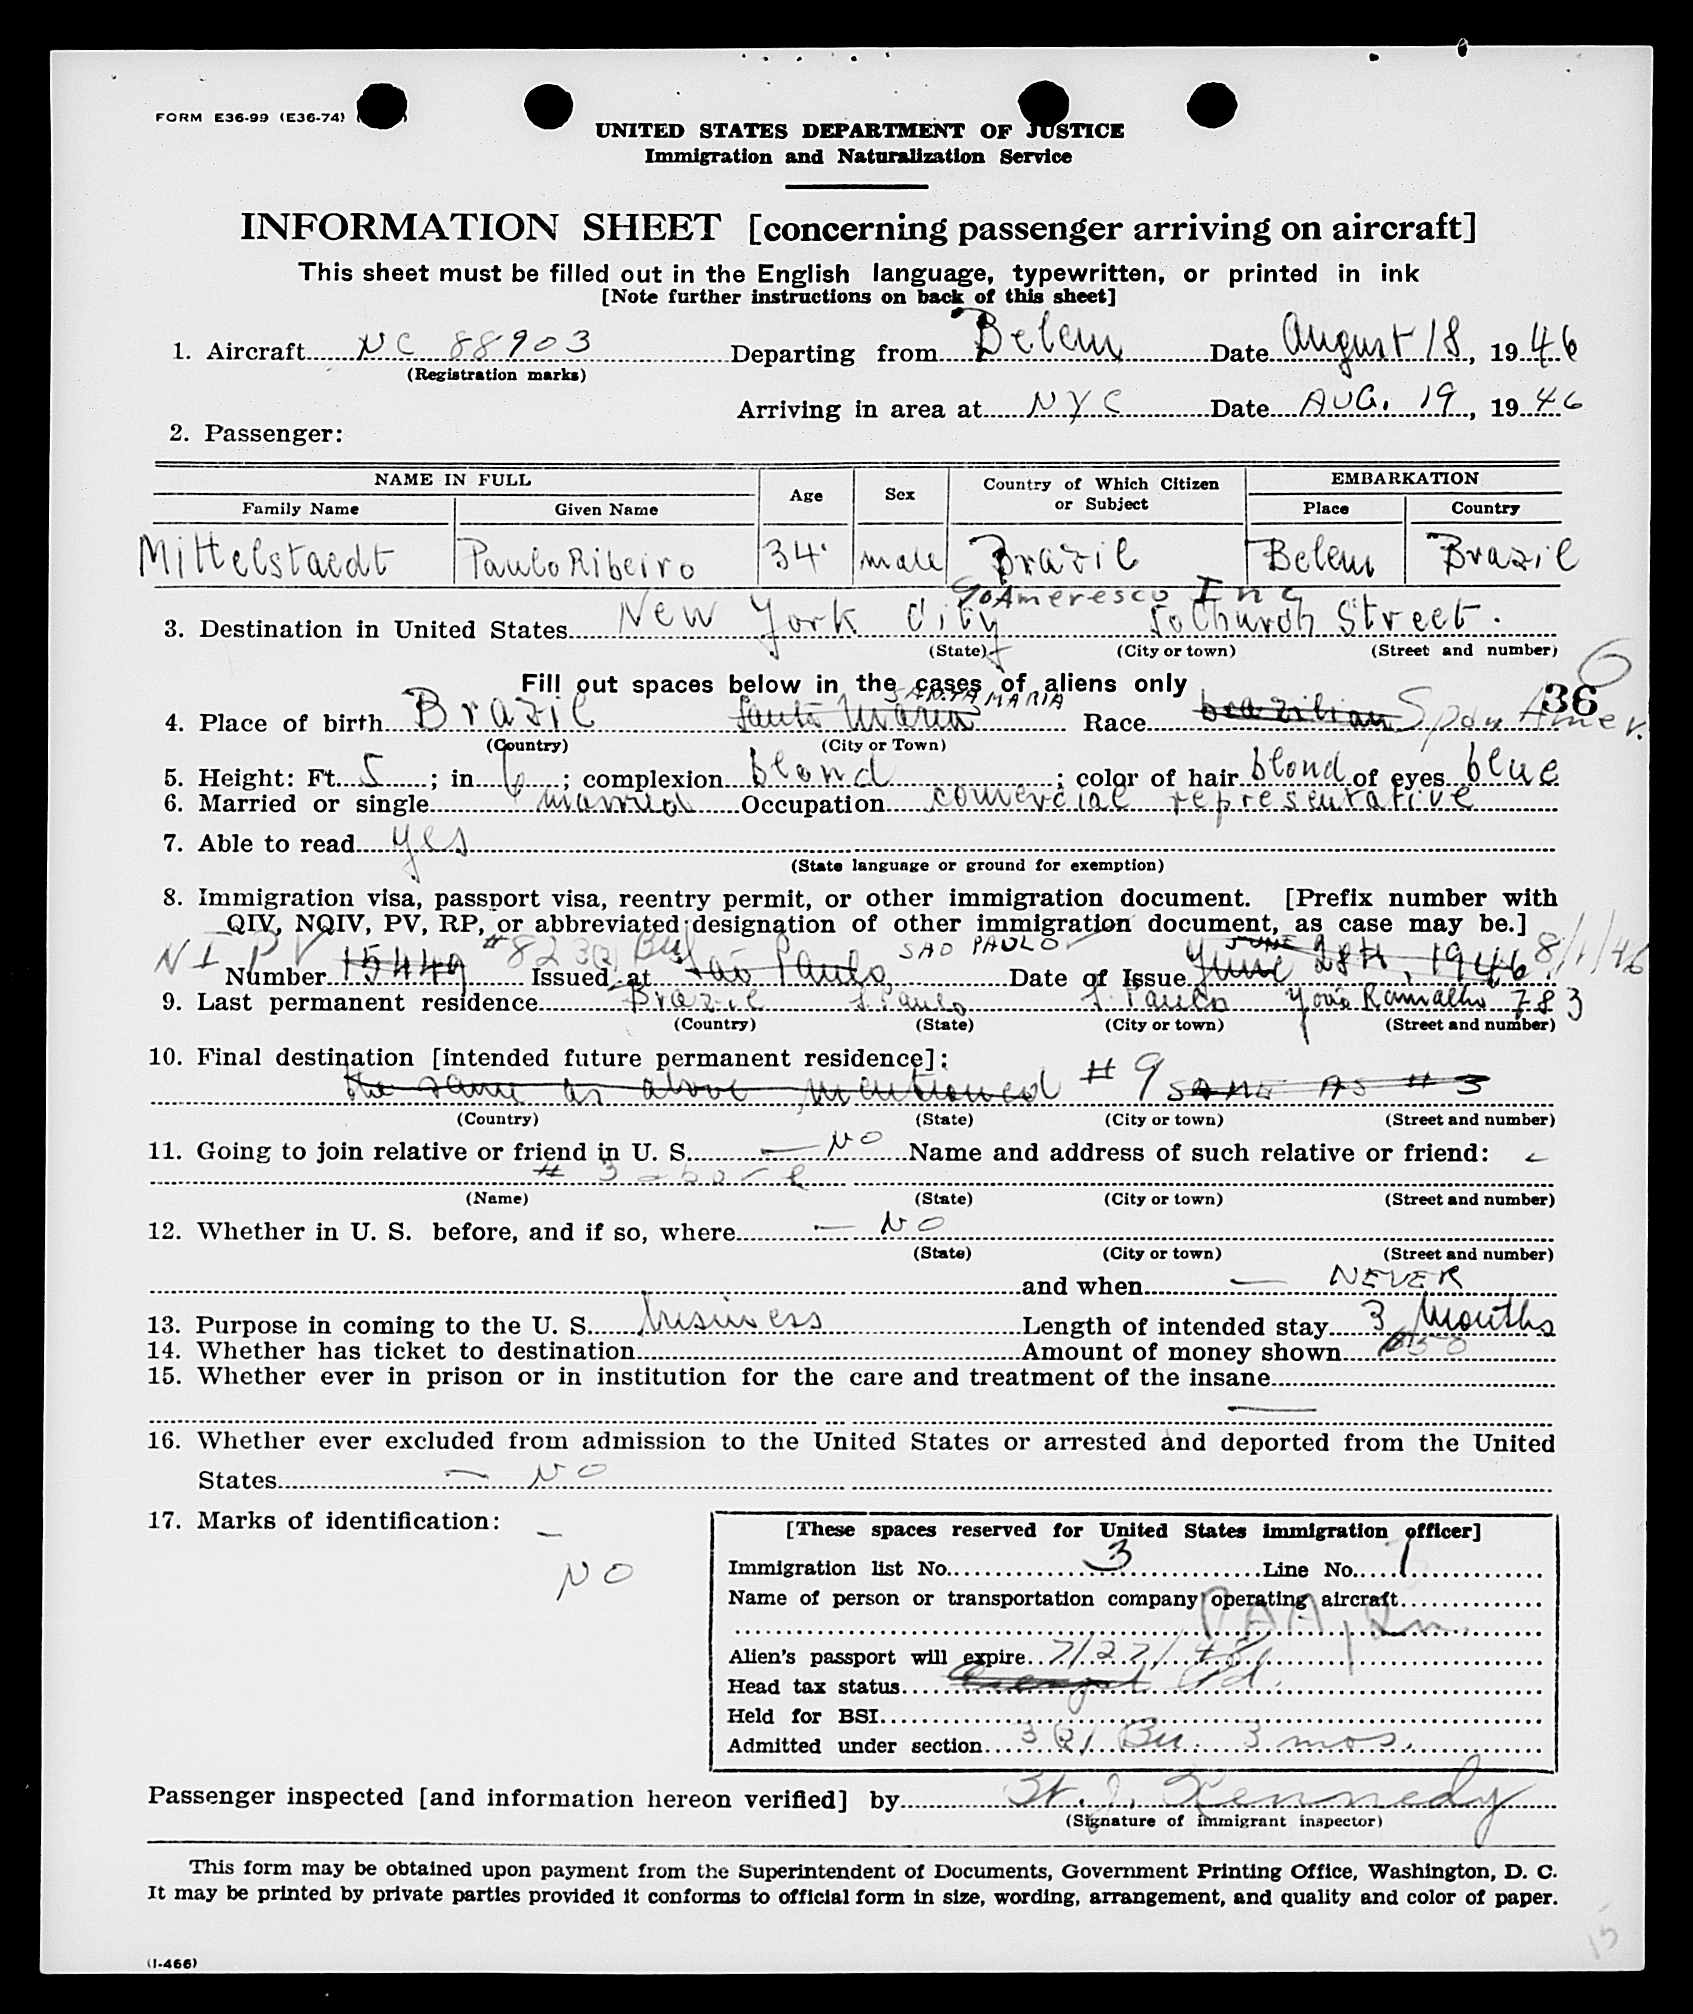 FORM E36-99 (E36-74)
UNITED STATES DEPARTMENT OF JUSTICE
Immigration and Naturalization Service
INFORMATION SHEET [concerning passenger arriving on aircraft]
This sheet must be filled out in the English language, typewritten, or printed in ink
[Note further instructions on back of this sheet]
1. Aircraft NC 88903 Departing from Belem Date August 18, 1946
(Registration marks)
Arriving in area at NYC Date AUG. 19, 1946
2. Passenger:
NAME IN FULL Age Sex Country of Which Citizen or Subject EMBARKATION
Family Name Given Name Place Country
Mittelstaedt Paulo Ribeiro 34 male Brazil Belem Brazil
c/o Ameresco Inc
3. Destination in United States New York City 50 Church Street.
(State) (City or town) (Street and number)
6
Fill out spaces below in the cases of aliens only
SANTA MARIA 36
4. Place of birth Brazil Santa Maria Race brazilian Span Amer.
(Country) (City or Town)
5. Height: Ft. 5; in. 6; complexion blond; color of hair blond of eyes blue
6. Married or single married Occupation comercial representative
7. Able to read yes
(State language or ground for exemption)
8. Immigration visa, passport visa, reentry permit, or other immigration document. [Prefix number with
QIV, NQIV, PV, RP, or abbreviated designation of other immigration document, as case may be.]
NI PV #823 SAO PAULO JUNE 8/1/46
Number 15449 Issued at São Paulo, Date of Issue June 28th, 1946
9. Last permanent residence Brazil S. Paulo S. Paulo 783
(Country) (State) (City or town) (Street and number)
10. Final destination [intended future permanent residence]:
the same as above mentioned #9 SAME AS #3
(Country) (State) (City or town) (Street and number)
11. Going to join relative or friend in U. S. — NO Name and address of such relative or friend:
# 3 above
(Name) (State) (City or town) (Street and number)
12. Whether in U. S. before, and if so, where — NO
(State) (City or town) (Street and number)
and when — NEVER
13. Purpose in coming to the U. S. business Length of intended stay 3 Months
14. Whether has ticket to destination Amount of money shown
15. Whether ever in prison or in institution for the care and treatment of the insane
—
16. Whether ever excluded from admission to the United States or arrested and deported from the United
States — NO
17. Marks of identification: —
NO
[These spaces reserved for United States immigration officer]
Immigration list No. 3 Line No. 1
Name of person or transportation company operating aircraft
PAA, In.
Alien's passport will expire 7/27/48
Head tax status Pd.
Held for BSI
Admitted under section 3(2) Bu. 3 mos.
Passenger inspected [and information hereon verified] by J. Kennedy
(Signature of immigrant inspector)
This form may be obtained upon payment from the Superintendent of Documents, Government Printing Office, Washington, D. C.
It may be printed by private parties provided it conforms to official form in size, wording, arrangement, and quality and color of paper.
15
(I-466)